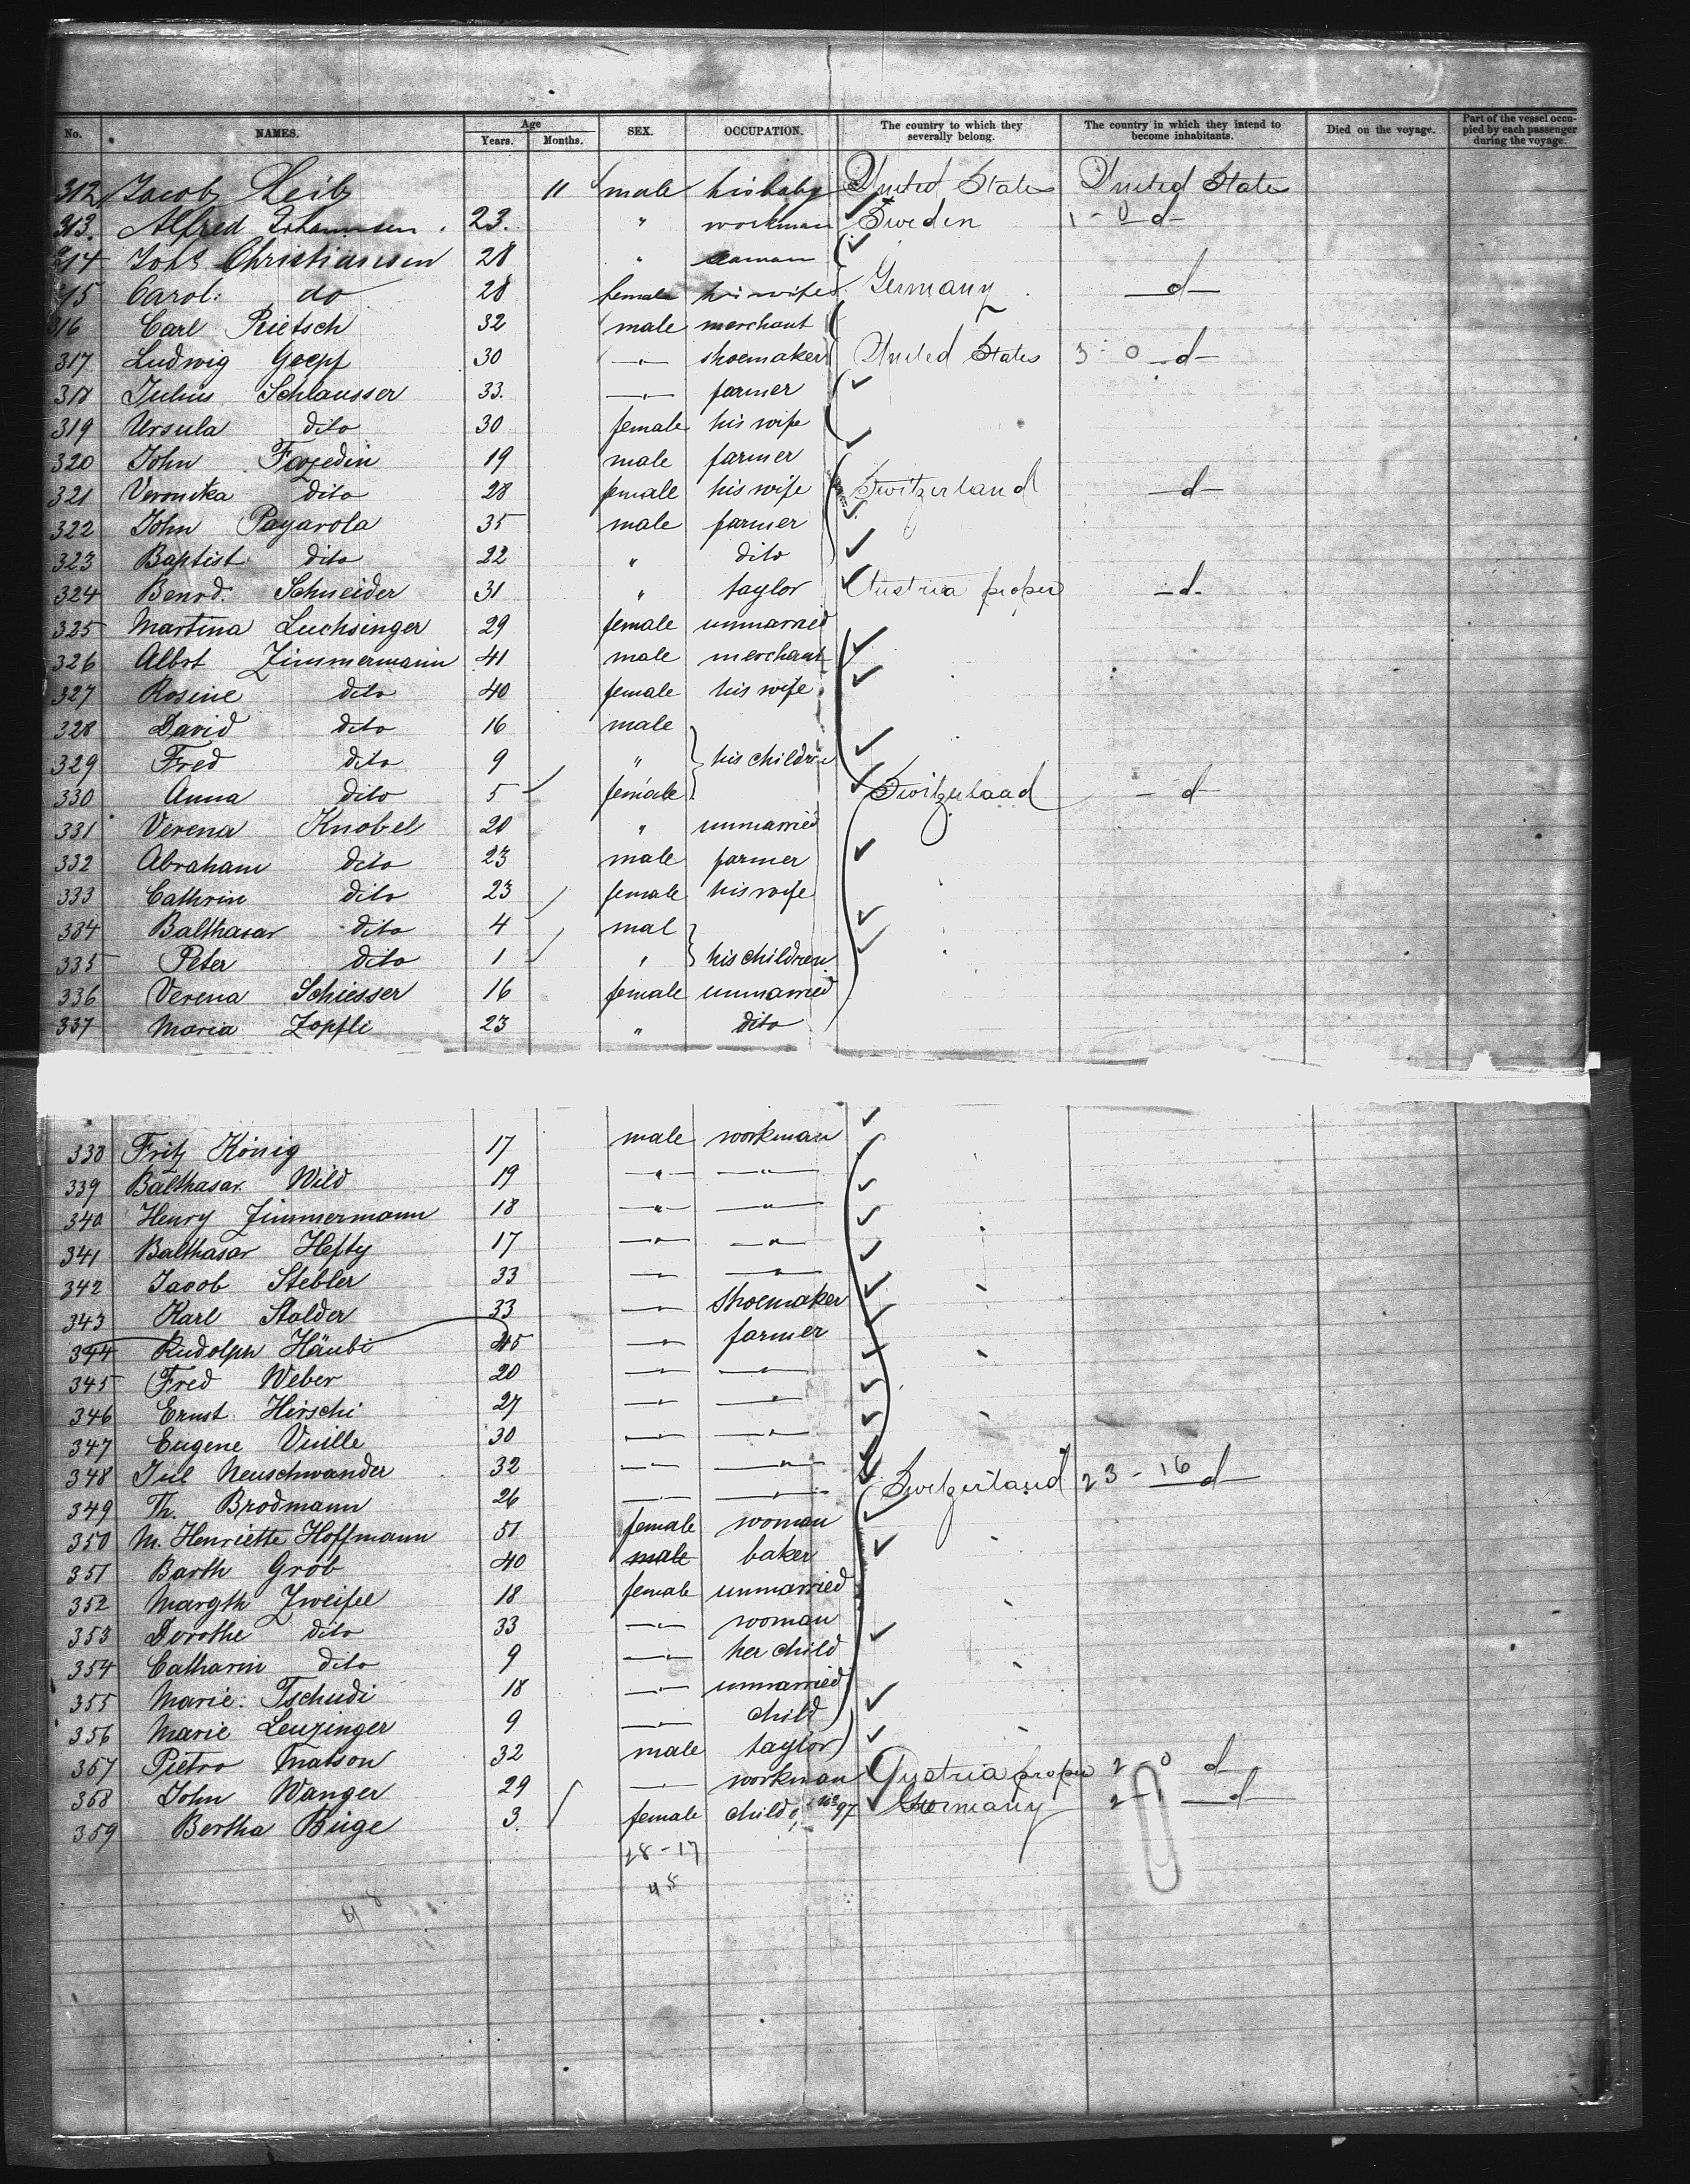 No. NAMES. Age Years. Months. SEX. OCCUPATION. The country to which they severally belong. The country in which they intend to become inhabitants. Died on the voyage. Part of the vessel occupied by each passenger during the voyage.
312 Jacob Leib 11 male his baby United States United States
313. Alfred Johannsen. 23. " workman Sweden 1 - 0 d
314 Johs Christiansen 28 " seaman
315 Carol. do 28 female his wife Germany d
316 Carl Rietsch 32 male merchant
317 Ludwig Goepf 30 " shoemaker United States 3 - 0 d
318 Julius Schlausser 33. " farmer
319 Ursula dito 30 female his wife
320 John Fozedin 19 male farmer
321 Veronika dito 28 female his wife Switzerland d
322 John Payarola 35 male farmer
323 Baptist dito 22 " dito
324 Benrd. Schneider 31 " taylor Austria proper d.
325 Martina Luchsinger 29 female unmarried
326 Albrt Zimmermann 41 male merchant
327 Rosine dito 40 female his wife
328 David dito 16 male
329 Fred dito 9 " his children
330 Anna dito 5 female Switzerland d
331 Verena Knobel 20 " unmarried
332 Abraham dito 23 male farmer
333 Cathrin dito 23 female his wife
334 Balthasar dito 4 mal
335 Peter dito 1 " his children
336 Verena Schiesser 16 female unmarried
337 Maria Zopfli 23 " dito
338 Fritz König 17 male workman
339 Balthasar Wild 19 " "
340 Henry Zimmermann 18 " "
341 Balthasar Hefty 17 " "
342 Jacob Stebler 33 " "
343 Karl Stalder 33 " shoemaker
344 Rudolph Häubi 45 " farmer
345 Fred Weber 20 " "
346 Ernst Hirschi 27 " "
347 Eugene Vuille 30 " "
348 Jul Neuschwander 32 " "
349 Th. Brodmann 26 " " Switzerland 23 - 16 d
350 M. Henriette Hoffmann 51 female woman
351 Barth Grob 40 male baker
352 Margth Zweifel 18 female unmarried
353 Dorothe dito 33 " woman
354 Catharin dito 9 " her child
355 Marie Tschudi 18 " unmarried
356 Marie Leuzinger 9 " child
357 Pietro Matson 32 male taylor Austria proper 2 - 0 d
358 John Wanger 29 " workman Germany 2 - 1 d
359 Bertha Büge 3. female child 97
28 - 17
45